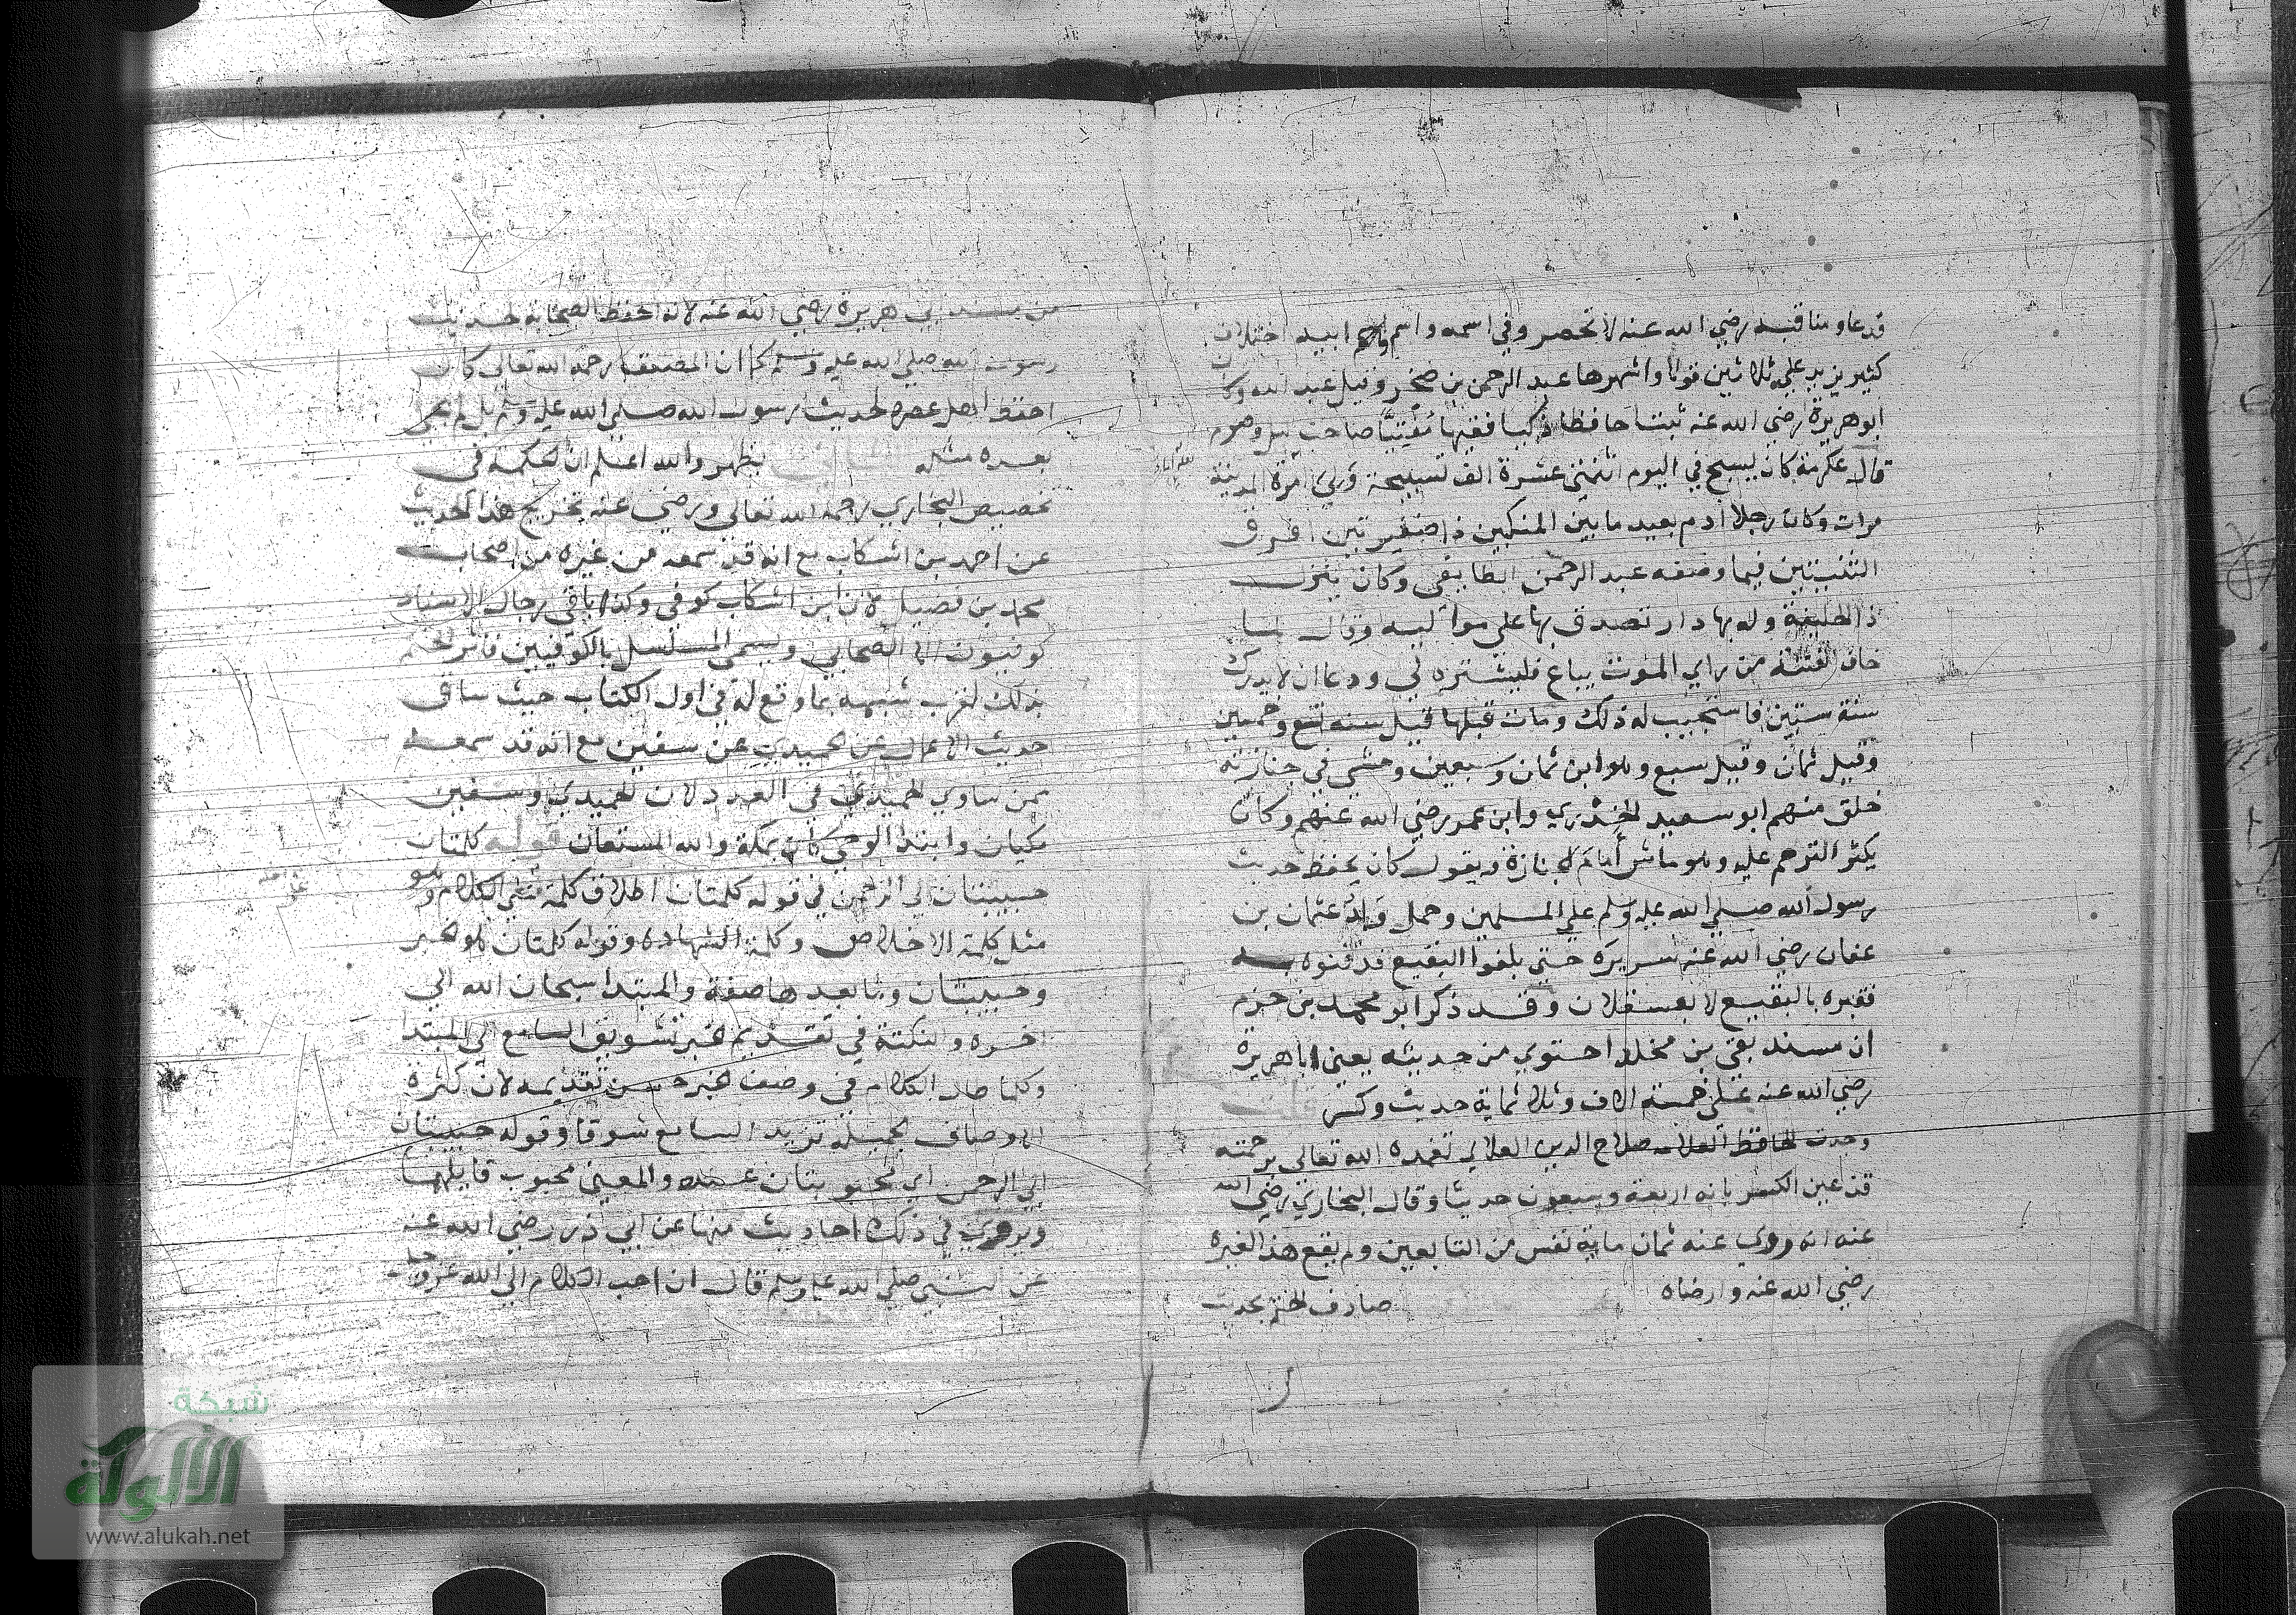 قدعا ومناقبه رضي الله عنه لا تحصر وفي اسمه واسم ابيه اختلاف
كثير يزيد علي ثلاثين قولا واشهرها عبد الرحمن بن صخر وقيل عبد الله وكان
ابو هريرة رضي الله عنه ثبتا حافظا ذكيا فقيها مُفتيًا صاحب ليل وصوم
قال عكرمة كان يسبح في اليوم اثنتي عشرة الف تسبيحة وَلي امرة المدينة
مرات وكان رجلا ادم بعيد ما بين المنكبين ذا ضفيرتين افرق
الثنيتين فيما وصفه عبد الرحمن الطايفي وكان ينزل
ذا الحليفة وله بها دار تصدق بها علي مواليه وقال لما
خاف الفتنة من راي الموت يباع فليشتره لي ودعا ان لا يدرك
سنة ستين فاستجيب له ذلك ومات قبلها قيل سنه تسع وخمسين
وقيل ثمان وقيل سبع وهو ابن ثمان وسبعين ومشي في جنازته
خلق منهم ابو سعيد الخدري وابن عمر رضي الله عنهم وكان
يكثر الترحم عليه وهو ماش أمام الجنازة ويقول كان يحفظ حديث
رسول الله صلي الله عليه وسلم علي المسلمين وحمل وَلدُ عثمان بن
عفان رضي الله عنه سريره حتي بلغوا البقيع فدفنوه به
فقبره بالبقيع لا بعسقلان وقد ذكر ابو محمد بن حزم
ان مسند بقي بن مخلد احتوي من حديثه يعني ابا هريرة
رضي الله عنه علي خمسة الاف وثلاثماية حديث وكسر قلت
وجدت الحافظ العلامه صلاح الدين العلائي تغمده الله تعالي برحمته
قد عين الكسر بانه اربعة وسبعون حديثا وقال البخاري رضي الله
عنه انه روي عنه ثمان ماية نفس من التابعين ولم يقع هذا لغيره
رضي الله عنه وارضاه صادف الختم بحديث
من مسند ابي هريرة رضي الله عنه لانه احفظ الصحابة لحديث
رسول الله صلي الله عليه وسلم كما ان المصنف رحمه الله تعالي كان
احفظ اهل عصره لحديث رسول الله صلي الله عليه وسلم بل لم يجئ
بعده مثله يظهر والله اعلم ان الحكمة في
تخصيص البخاري رحمه الله تعالي ورضي عنه تخريج هذا الحديث
عن احمد بن اشكاب مع انه قد سمعه من غيره من اصحاب
محمد بن فضيل لان ابن اشكاب كوفي وكذا باقي رجال الاسناد
كوفيون الا الصحابي ويسمي المسلسل بالكوفيين فاثر الختم
بذلك لقرب شبهه بما وقع له في اول الكتاب حيث ساق
حديث الاعمال عن الحميدي عن سفين مع انه قد سمعه
ممن ساوي الحميدي في العدد لان الحميدي وسفين
مكيان وابتدا الوحي كان بمكة والله المستعان قوله كلمتان
حبيبتان الي الرحمن في قوله كلمتان اطلاق كلمة علي الكلام وهو
مثل كلمة الاخلاص وكلمة الشهاده وقوله كلمتان هو الخبر
وحبيبتان وما بعدها صفة والمبتدا سبحان الله الي
اخره والنكتة في تقديم الخبر تشويق السامع الي المبتدا
وكلما طال الكلام في وصف الخبر حسن تقديمه لان كثرة
الاوصاف الجميلة تزيد السامع شوقا وقوله حبيبتان
الي الرحمن اي محبوبتان عنده والمعني محبوب قايلها
وروي في ذلك احاديث منها عن ابي ذر رضي الله عنه
عن النبي صلي الله عليه وسلم قال ان احب الكلام الي الله عز وجل
شبكة
الألوكة
www.alukah.net